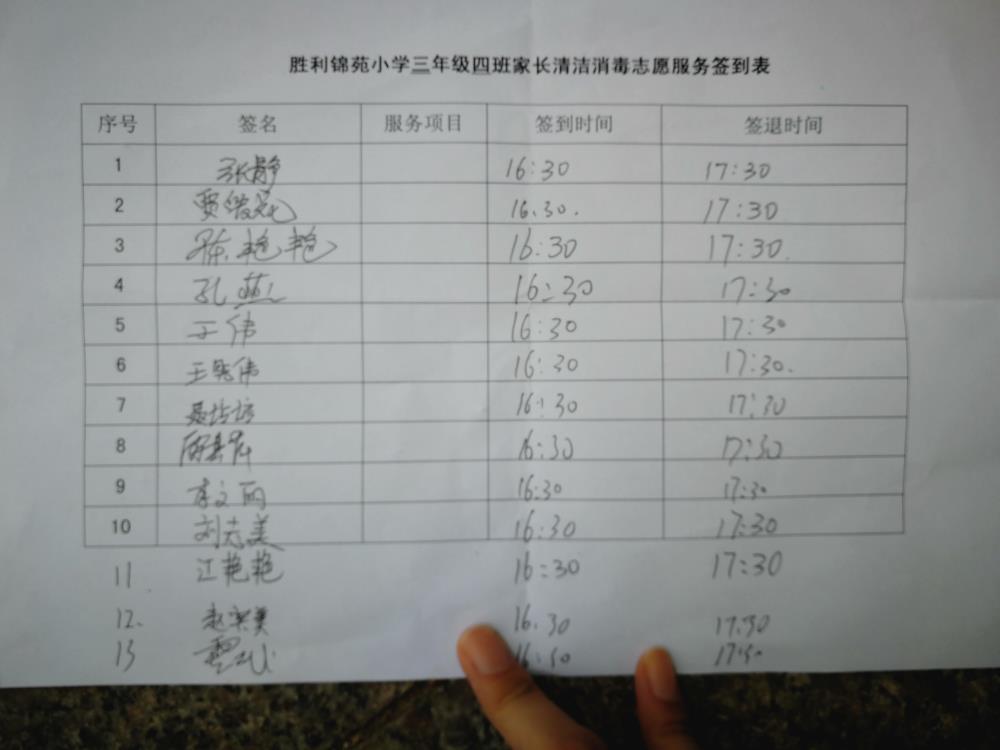 胜利锦苑小学三年级四班家长清洁消毒志愿服务签到表
序号 签名 服务项目 签到时间 签退时间
1 张静 16:30 17:30
2 贾 16.30. 17:30
3 陈艳艳 16:30 17:30.
4 孔燕 16:30 17:30
5 于伟 16:30 17:30
6 王 伟 16:30 17:30.
7 聂 16:30 17:30
8 16:30 17:30
9 李文丽 16:30 17:30
10 刘志美 16:30 17:30
11 江艳艳 16:30 17:30
12. 赵 美 16.30 17.30
13 16:30 17:30